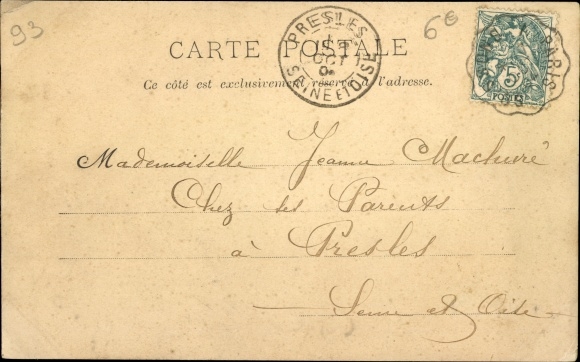 93
6€
PRESLES
OCT
SEINE ET OISE
5
POSTES
CARTE POSTALE
Ce côté est exclusivement réservé à l'adresse.
Mademoiselle Jeanne Machuré
Chez ses Parents
à Presles
Seine et Oise